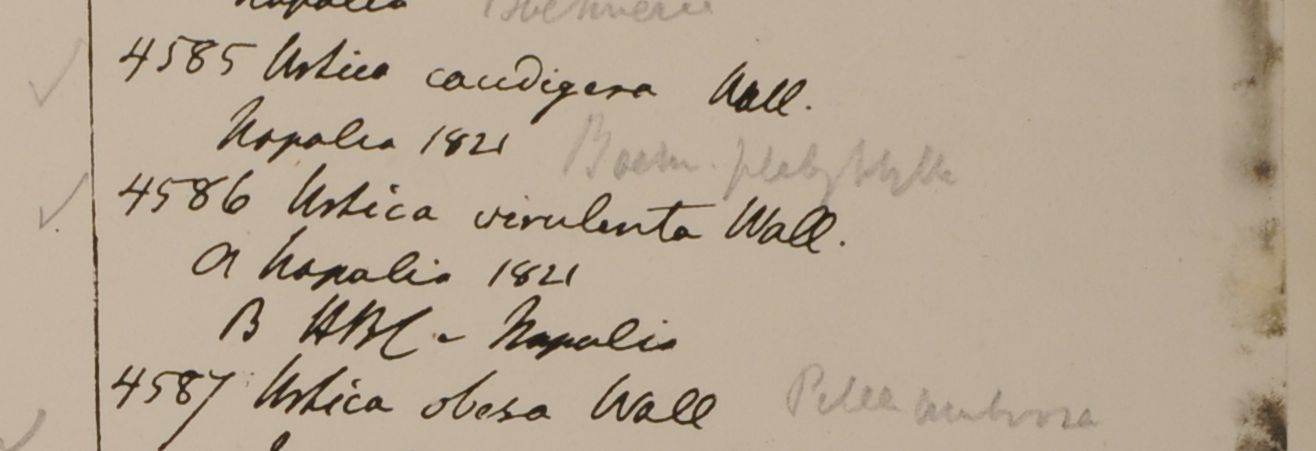 Napalia Boehmeria
4585 Urtica caudigera Wall.
Napalia 1821 Boehm. platyphylla
4586 Urtica virulenta Wall.
a Napalia 1821
B HBC - Napalia
4587 Urtica obesa Wall Pilea umbrosa